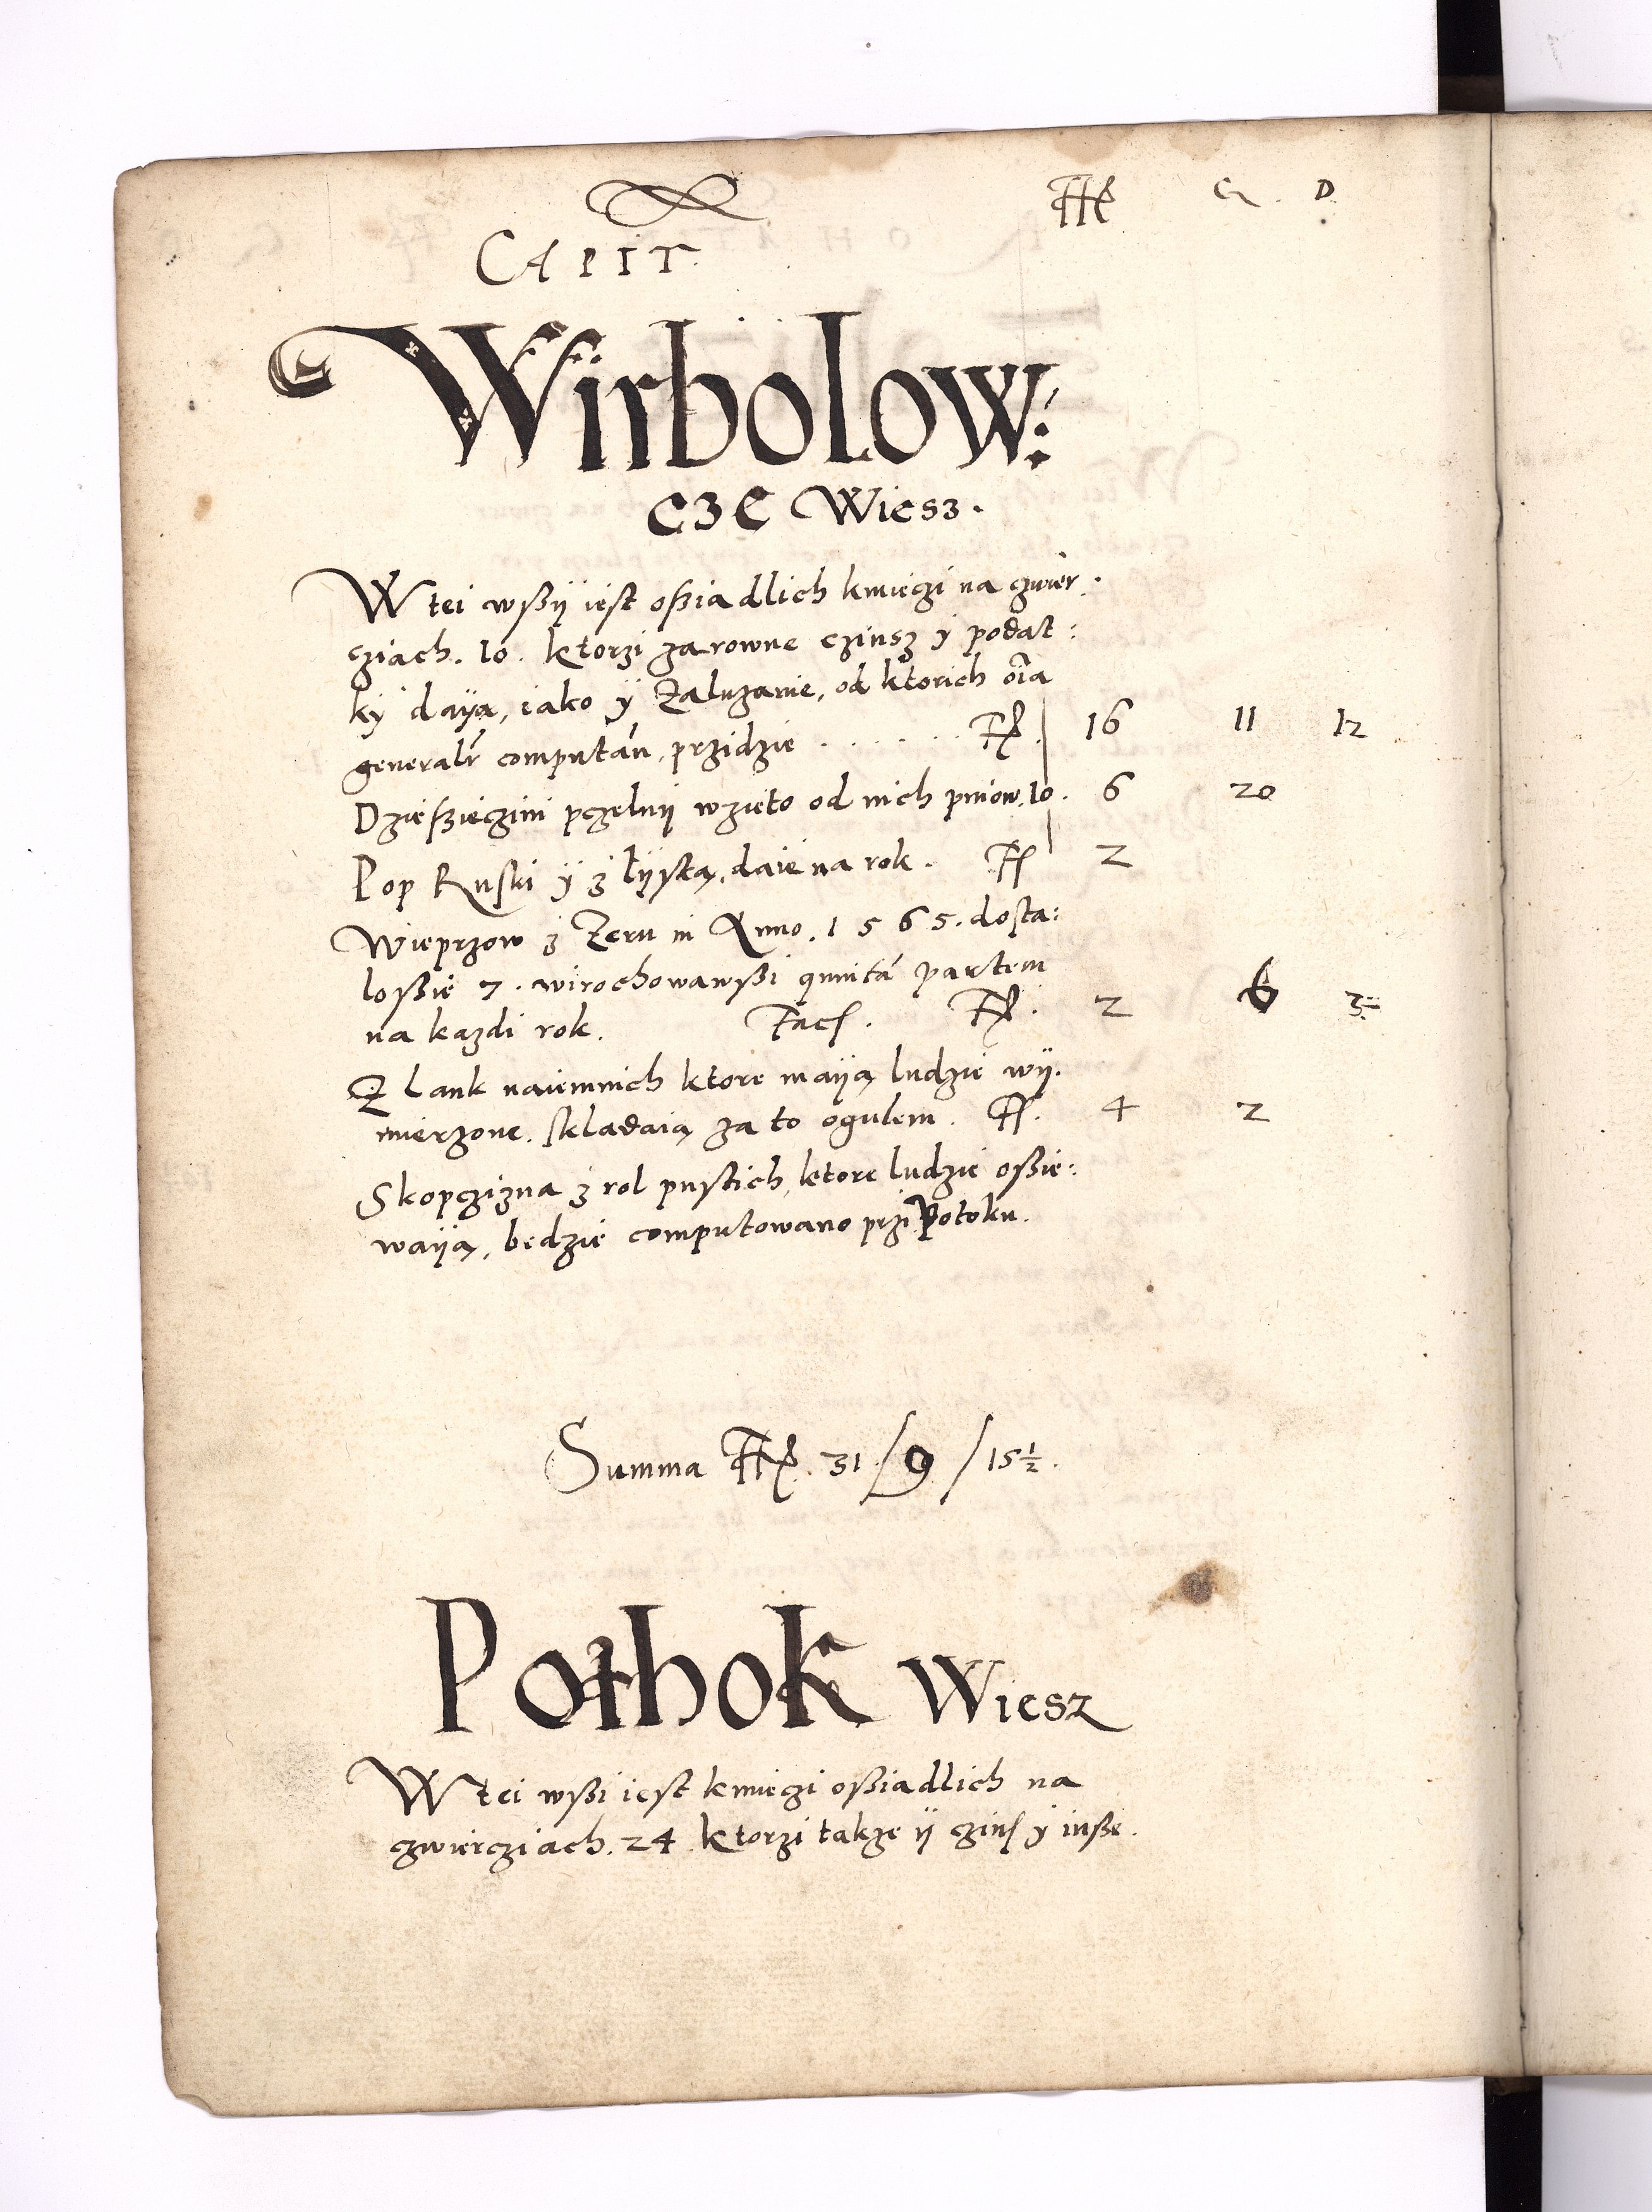 Fl G. D
CAPIT.
Wirbolow:
cze Wiesz.
W tei wssÿ iest ossiadlich kmieczi na czwier.
cziach. 10. ktorzi zarowne czinsz ÿ podat:
kÿ daÿą, iako ÿ Zaluzanie, od ktorich oīa
general̃r computãn, przidzie . . . . . . Fl. 16 11 12
Dziessieczini pczelnÿ wzieto od nich pniow. 10. 6 20
Pop Ruski ÿ z lÿstą, daie na rok. Fl 2
Wieprzow z Zeru in Anno. 1565. dosta:
lossie 7. wirochowawssi quintã partem
na kazdi rok. Facſ. Fl. 2 6
Z lank naiemnich ktore maÿą ludzie wÿ.
mierzone. skladaią za to ogulem. Fl. 4 2
Skopczizna z rol pustich, ktore ludzie ossie:
waÿą, bedzie computowano przi Potoku.
Summa Fl. 31 / 9 / 15 1/2.
Pothok Wiesz
W tei wssi iest kmieczi ossiadlich na
czwiercziach. 24. ktorzi takze ÿ czinſ ÿ insse.